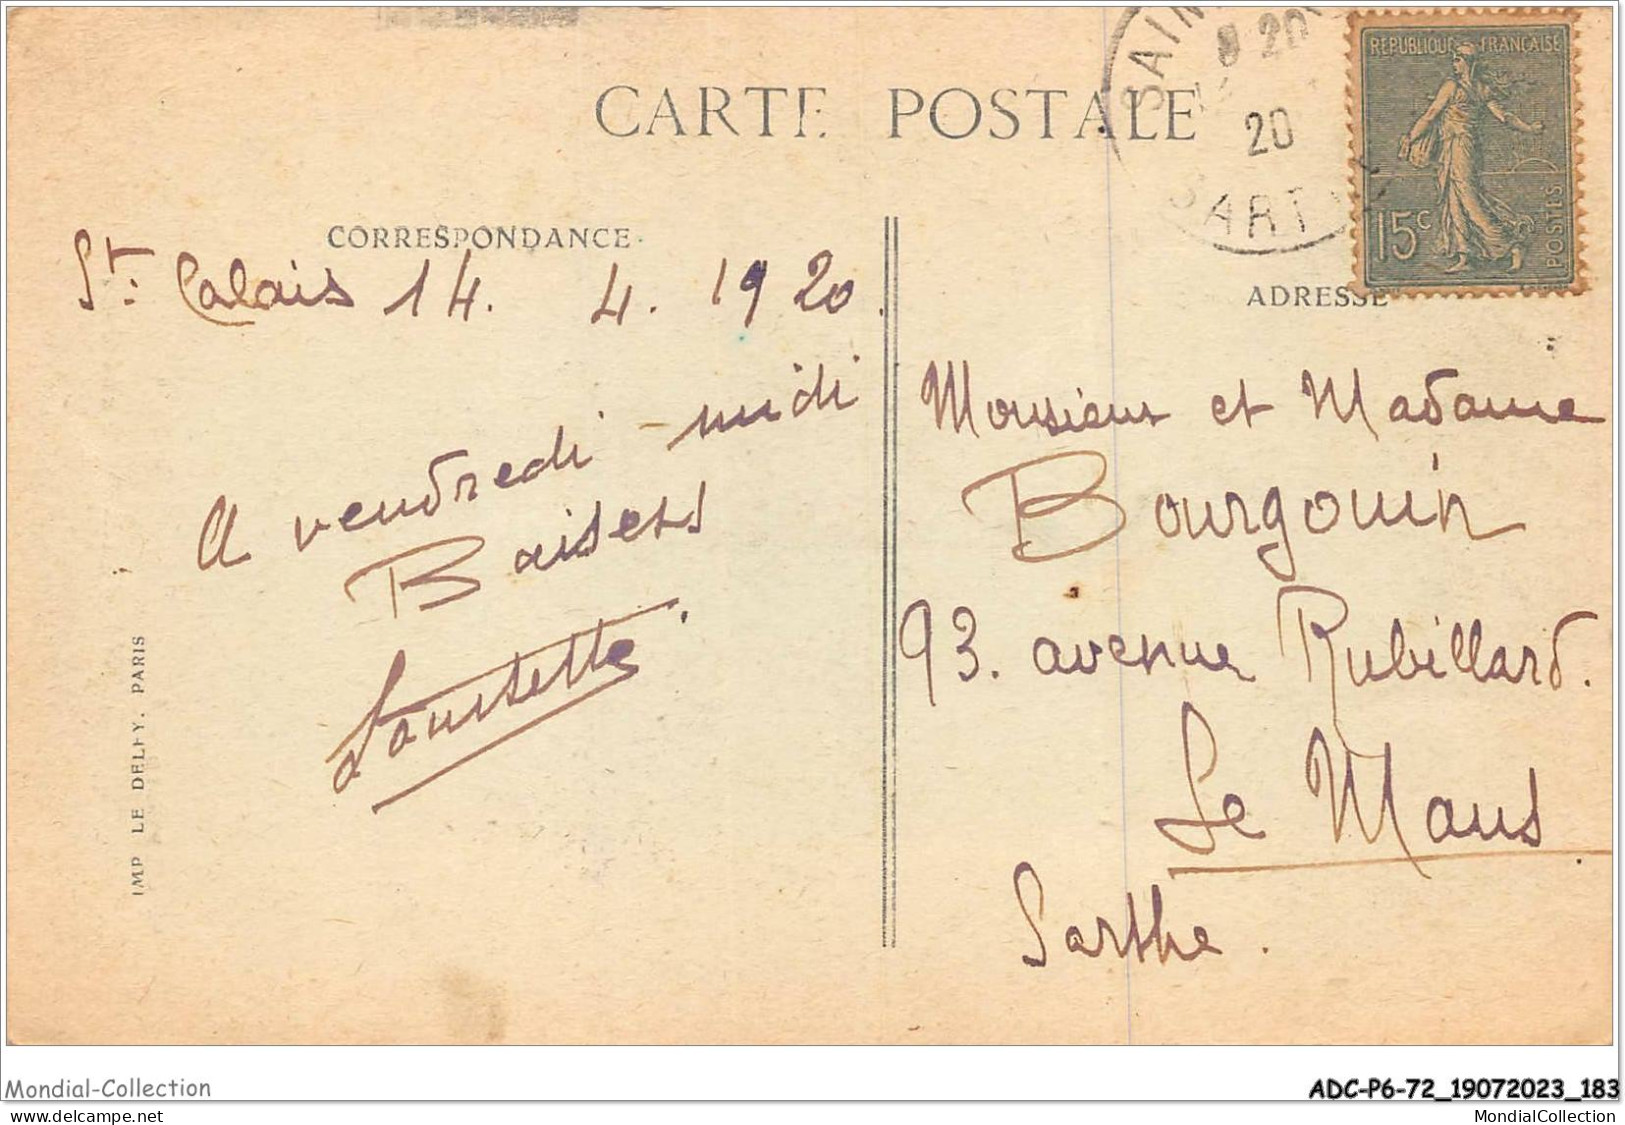 CARTE POSTALE
SAIN
8 20
20
SARTHE
REPUBLIQUE FRANÇAISE
15c
POSTES
CORRESPONDANCE
ADRESSE
St. Calais 14. 4. 1920.
A vendredi midi
Baisers
Monsieur et Madame
Bourgouin
93. avenue Rubillard.
Le Mans
Sarthe.
IMP LE DELEY. PARIS
Mondial-Collection
ADC-P6-72_19072023_183
www.delcampe.net
MondialCollection